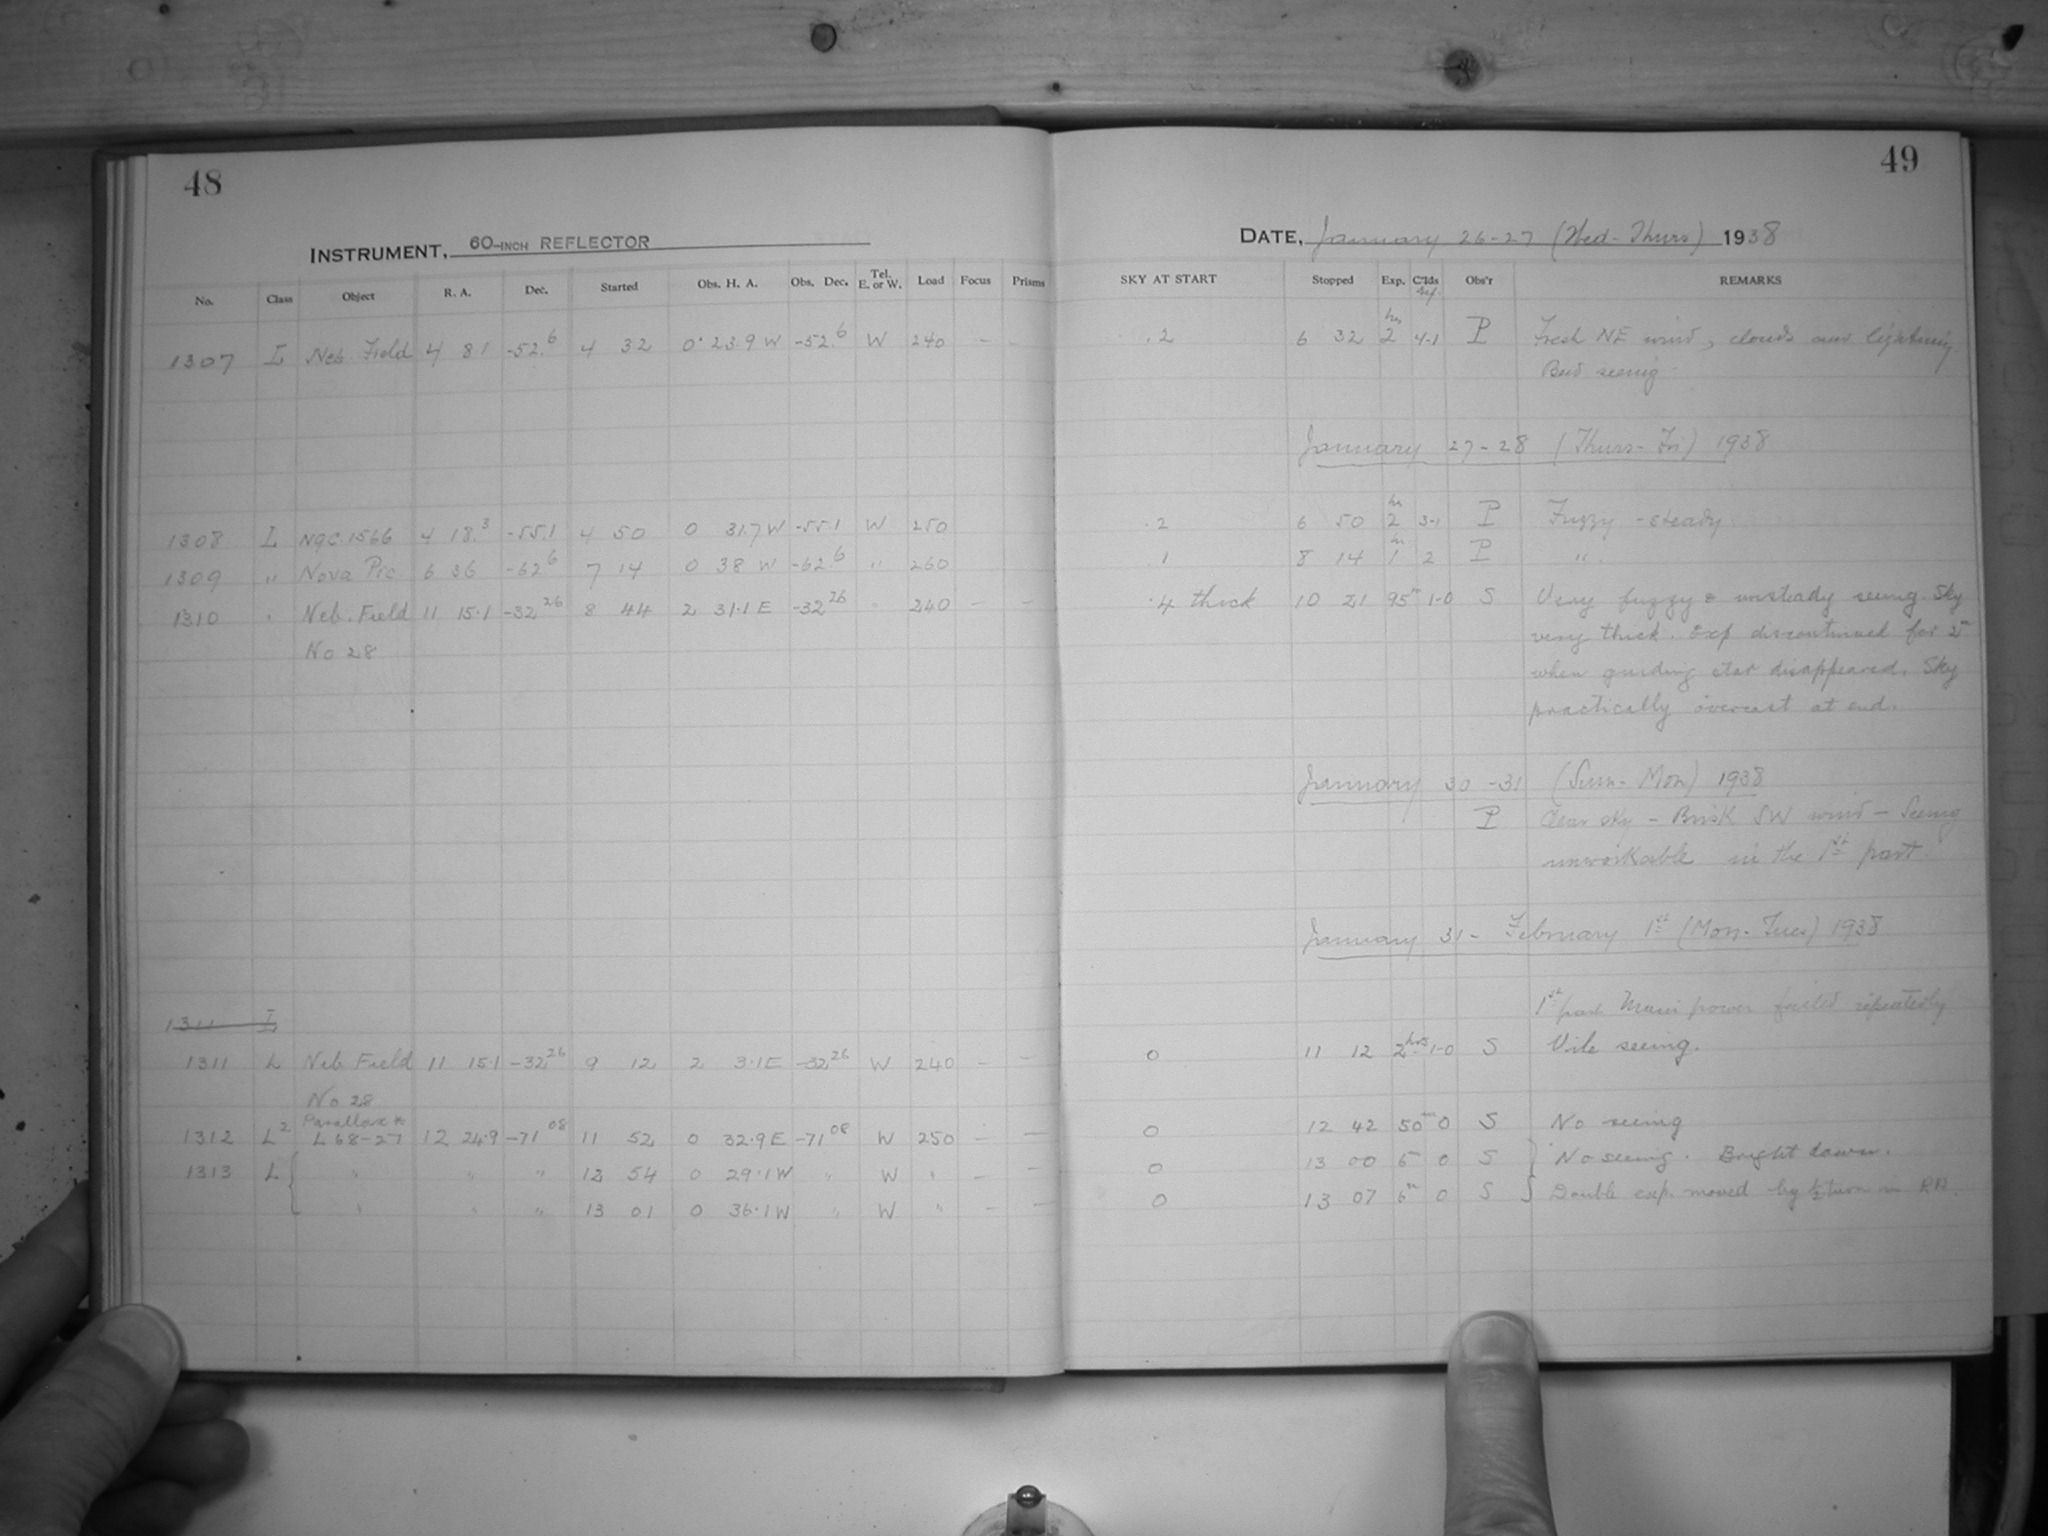 48
INSTRUMENT, 60-INCH REFLECTOR
No. Class Object R. A. Dec. Started Obs. H. A. Obs. Dec. Tel. E. or W. Load Focus Prisms
1307 L Neb. Field 4 8.1 -52.6 4 32 0 23.9 W -52.6 W 240 - -
1308 L NGC.1566 4 18.3 -55.1 4 50 0 31.7 W -55.1 W 250
1309 " Nova Pic 6 36 -62.6 7 14 0 38 W -62.6 " 260
1310 " Neb. Field 11 15.1 -32 26 8 44 2 31.1 E -32 26 " 240 - -
No 28
1311 L
1311 L Neb. Field 11 15.1 -32 26 9 12 2 3.1 E -32 26 W 240 - -
No 28
Parallax *
1312 L2 L 68-27 12 24.9 -71 08 11 52 0 32.9 E -71 08 W 250 - -
1313 L { " " " 12 54 0 29.1 W " W " - -
" " " 13 01 0 36.1 W " W " - -
49
DATE, January 26-27 (Wed-Thurs) 1938
SKY AT START Stopped Exp. C'lds Obs'r REMARKS
.2 6 32 2 hrs 4-1 P Fresh NE wind, clouds and lightning.
Bad seeing.
January 27-28 (Thurs-Fri) 1938
.2 6 50 2 hr 3-1 P Fuzzy - steady
.1 8 14 1 hr 2 P "
.4 thick 10 21 95m 1-0 S Very fuzzy & unsteady seeing. Sky
very thick. Exp discontinued for 2m
when guiding star disappeared. Sky
practically overcast at end.
January 30-31 (Sun-Mon) 1938
P Clear sky - Brisk SW wind - Seeing
unworkable in the 1st part.
January 31 - February 1st (Mon-Tues) 1938
1st part Main power failed repeatedly
0 11 12 2hrs 1-0 S Vile seeing.
0 12 42 50m 0 S No seeing
0 13 00 6m 0 S } No seeing. Bright dawn.
0 13 07 6m 0 S } Double exp. moved by 1/2 turn in RA.